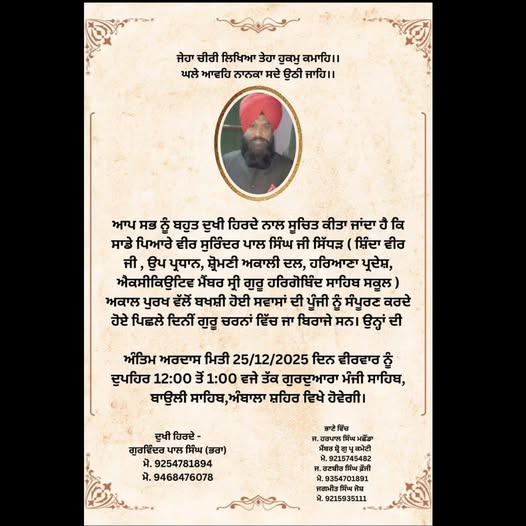 ਜੇਹਾ ਚੀਰੀ ਲਿਖਿਆ ਤੇਹਾ ਹੁਕਮੁ ਕਮਾਹਿ।।
ਘਲੇ ਆਵਹਿ ਨਾਨਕਾ ਸਦੇ ਉਠੀ ਜਾਹਿ।।
ਆਪ ਸਭ ਨੂੰ ਬਹੁਤ ਦੁਖੀ ਹਿਰਦੇ ਨਾਲ ਸੂਚਿਤ ਕੀਤਾ ਜਾਂਦਾ ਹੈ ਕਿ
ਸਾਡੇ ਪਿਆਰੇ ਵੀਰ ਸੁਰਿੰਦਰ ਪਾਲ ਸਿੰਘ ਜੀ ਸਿੱਧੜ ( ਸ਼ਿੰਦਾ ਵੀਰ
ਜੀ , ਉਪ ਪ੍ਰਧਾਨ, ਸ਼੍ਰੋਮਣੀ ਅਕਾਲੀ ਦਲ, ਹਰਿਆਣਾ ਪ੍ਰਦੇਸ਼,
ਐਕਸੀਕਿਉਟਿਵ ਮੈਂਬਰ ਸ੍ਰੀ ਗੁਰੂ ਹਰਿਗੋਬਿੰਦ ਸਾਹਿਬ ਸਕੂਲ )
ਅਕਾਲ ਪੁਰਖ ਵੱਲੋਂ ਬਖਸ਼ੀ ਹੋਈ ਸਵਾਸਾਂ ਦੀ ਪੂੰਜੀ ਨੂੰ ਸੰਪੂਰਣ ਕਰਦੇ
ਹੋਏ ਪਿਛਲੇ ਦਿਨੀਂ ਗੁਰੂ ਚਰਨਾਂ ਵਿੱਚ ਜਾ ਬਿਰਾਜੇ ਸਨ। ਉਨ੍ਹਾਂ ਦੀ
ਅੰਤਿਮ ਅਰਦਾਸ ਮਿਤੀ 25/12/2025 ਦਿਨ ਵੀਰਵਾਰ ਨੂੰ
ਦੁਪਹਿਰ 12:00 ਤੋਂ 1:00 ਵਜੇ ਤੱਕ ਗੁਰਦੁਆਰਾ ਮੰਜੀ ਸਾਹਿਬ,
ਬਾਉਲੀ ਸਾਹਿਬ,ਅੰਬਾਲਾ ਸ਼ਹਿਰ ਵਿਖੇ ਹੋਵੇਗੀ।
ਦੁਖੀ ਹਿਰਦੇ -
ਗੁਰਵਿੰਦਰ ਪਾਲ ਸਿੰਘ (ਭਰਾ)
ਮੋ. 9254781894
ਮੋ. 9468476078
ਭਾਣੇ ਵਿੱਚ
ਜ. ਹਰਪਾਲ ਸਿੰਘ ਮਛੌਂਡਾ
ਮੈਂਬਰ ਸ਼੍ਰੋ ਗੁ ਪ੍ਰ ਕਮੇਟੀ
ਮੋ. 9215745482
ਜ. ਰਣਬੀਰ ਸਿੰਘ ਫ਼ੌਜੀ
ਮੋ. 9354701891
ਜਗਮੀਤ ਸਿੰਘ ਜੋਬ
ਮੋ. 9215935111